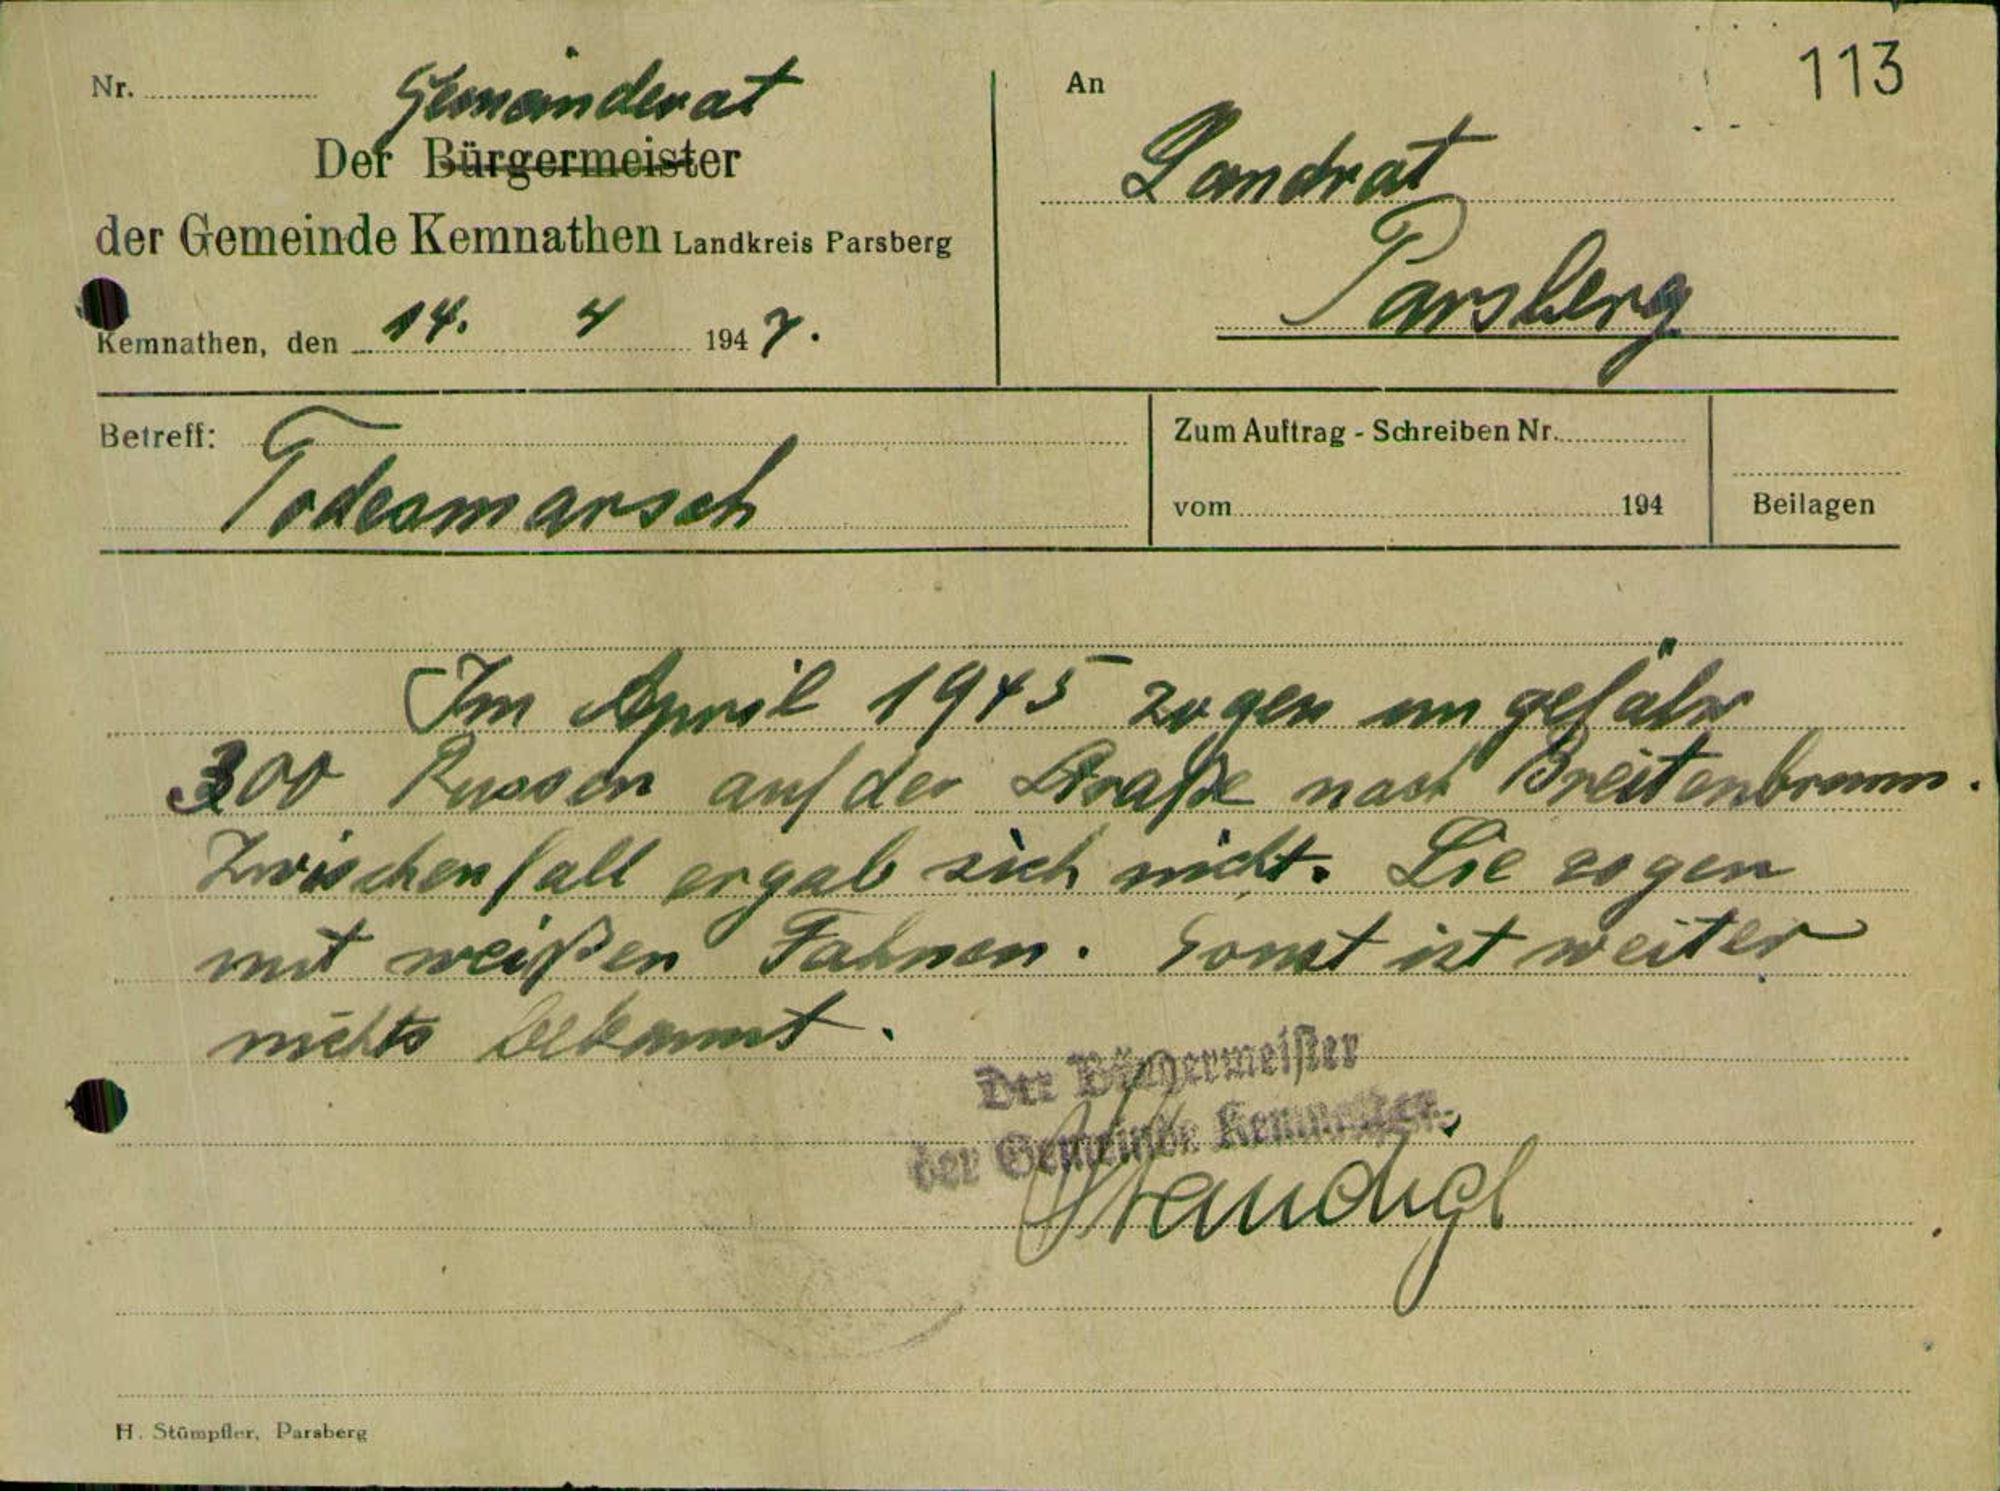 113
Nr.
Gemeinderat
Der Bürgermeister
der Gemeinde Kemnathen Landkreis Parsberg
Kemnathen, den 14. 4 1947.
An
Landrat
Parsberg
Betreff:
Todesmarsch
Zum Auftrag - Schreiben Nr.
vom 194
Beilagen
Im April 1945 zogen ungefähr
300 Russen auf der Straße nach Breitenbrunn.
Zwischenfall ergab sich nicht. Sie zogen
mit weißen Fahnen. Sonst ist weiter
nichts bekannt.
Der Bürgermeister
der Gemeinde Kemnathen
H. Stümpfler, Parsberg